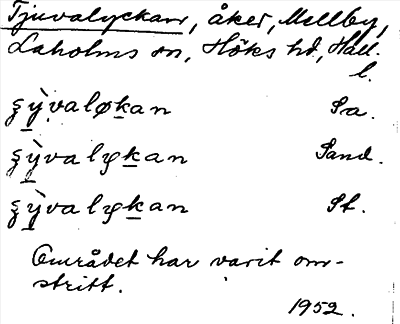 Tjuvalyckan, åker, Mellby,
Laholms sn, Höks hd, Hall.
l.
ʂỳ̠valøk̠an Sa.
ʂỳ̠valφk̠an Sand.
ʂỳ̠valφk̠an St.
Området har varit om-
stritt.
1952.